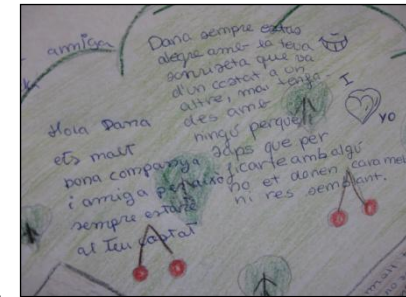 amiga
Dana sempre estas
alegre amb la teva
sonriseta que va
d'un costat a un
altre, mai tenga
des amb
ningú perquè
saps que per
ficarte amb algú
no et donen caramel
ni res semblant.
I
yo
Hola Dana
ets molt
bona companya
i amiga per això
sempre estaré
al teu costat